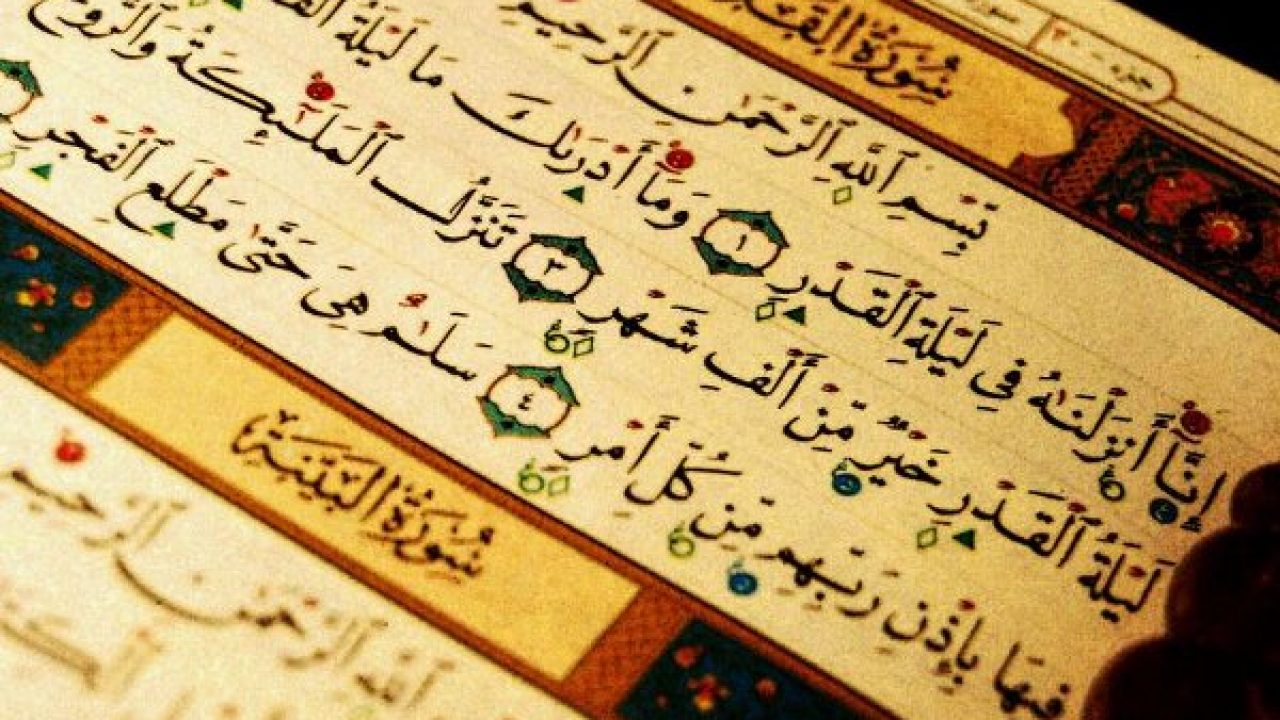 جزء - ٣٠ سورة
سُورَةُ القَدْ
بِسْمِ ٱللَّهِ ٱلرَّحْمَٰنِ ٱلرَّحِيمِ
إِنَّآ أَنزَلْنَٰهُ فِى لَيْلَةِ ٱلْقَدْرِ ١ وَمَآ أَدْرَىٰكَ مَا لَيْلَةُ
لَيْلَةُ ٱلْقَدْرِ خَيْرٌ مِّنْ أَلْفِ شَهْرٍ ٣ تَنَزَّلُ ٱلْمَلَٰٓئِكَةُ وَٱلرُّوحُ
فِيهَا بِإِذْنِ رَبِّهِم مِّن كُلِّ أَمْرٍ ٤ سَلَٰمٌ هِىَ حَتَّىٰ مَطْلَعِ ٱلْفَجْرِ
سُورَةُ البَيِّنَةِ
ٱللَّهِ ٱلرَّحْمَٰنِ ٱلرَّحِيمِ